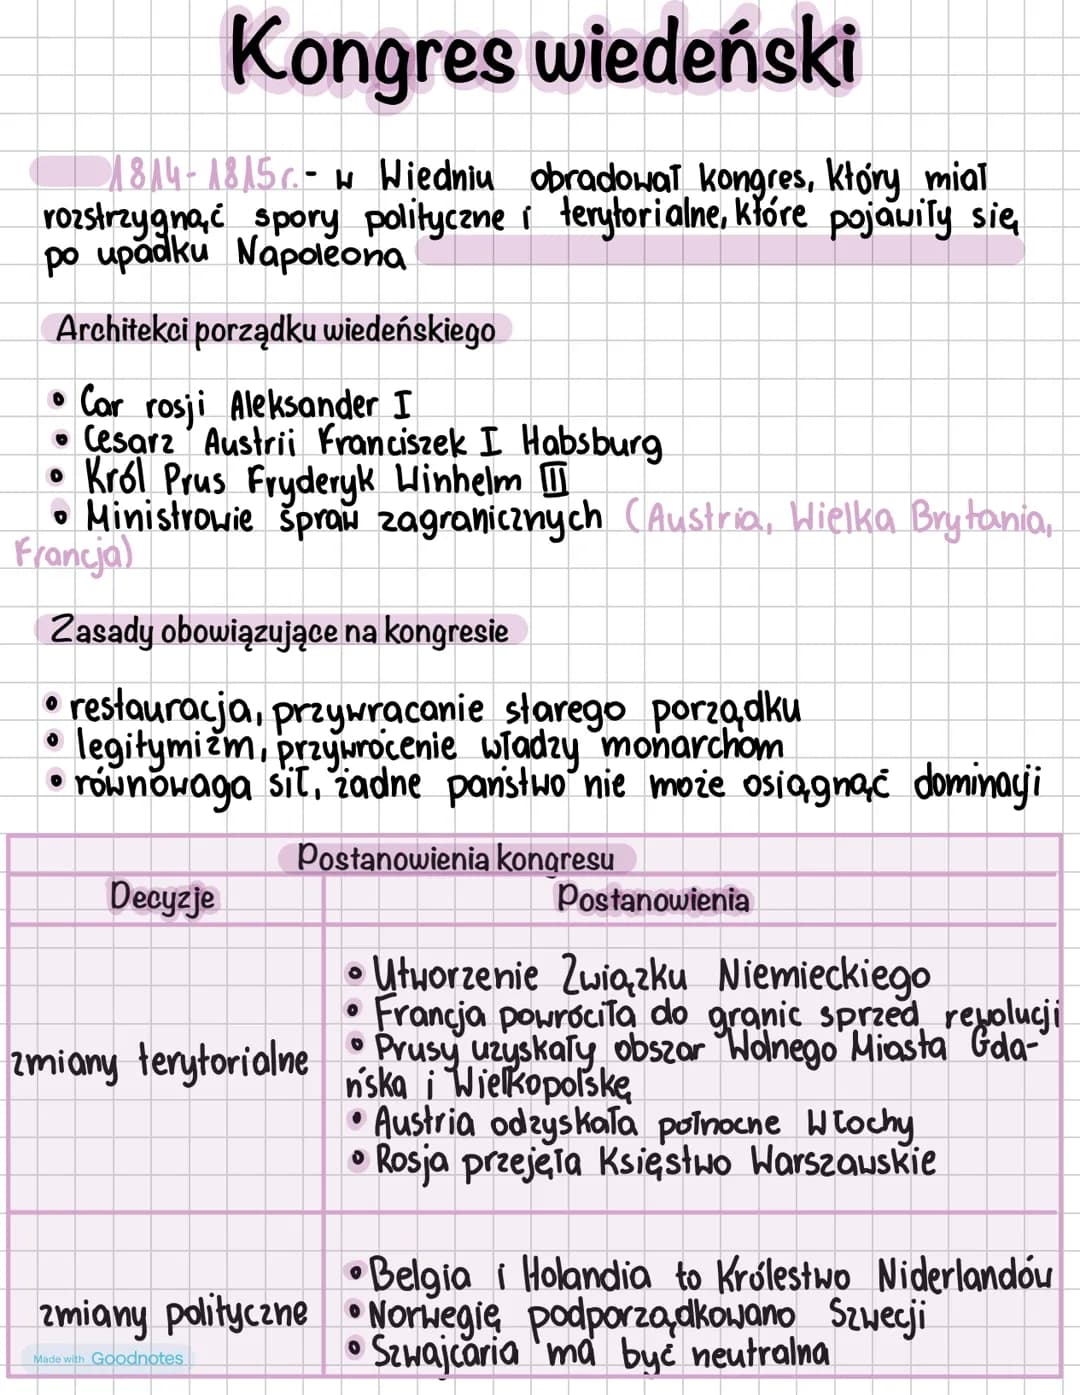 Kongres wiedeński
1814-1815r.- w Wiedniu obradował kongres, który miał
rozstrzygnąć spory polityczne i terytorialne, które pojawiły się
po upadku Napoleona
Architekci porządku wiedeńskiego
• Car rosji Aleksander I
• Cesarz Austrii Franciszek I Habsburg
• Król Prus Fryderyk Winhelm III
• Ministrowie spraw zagranicznych (Austria, Wielka Brytania,
Francja)
Zasady obowiązujące na kongresie
• restauracja, przywracanie starego porządku
• legitymizm, przywrócenie władzy monarchom
• równowaga sił, żadne państwo nie może osiągnąć dominacji
Postanowienia kongresu
Decyzje
Postanowienia
zmiany terytorialne
• Utworzenie Związku Niemieckiego
• Francja powróciła do granic sprzed rewolucji
• Prusy uzyskały obszar Wolnego Miasta Gda-
ńska i Wielkopolskę
• Austria odzyskała północne Włochy
• Rosja przejęła Księstwo Warszawskie
zmiany polityczne
• Belgia i Holandia to Królestwo Niderlandów
• Norwegię podporządkowano Szwecji
• Szwajcaria ma być neutralna
Made with Goodnotes